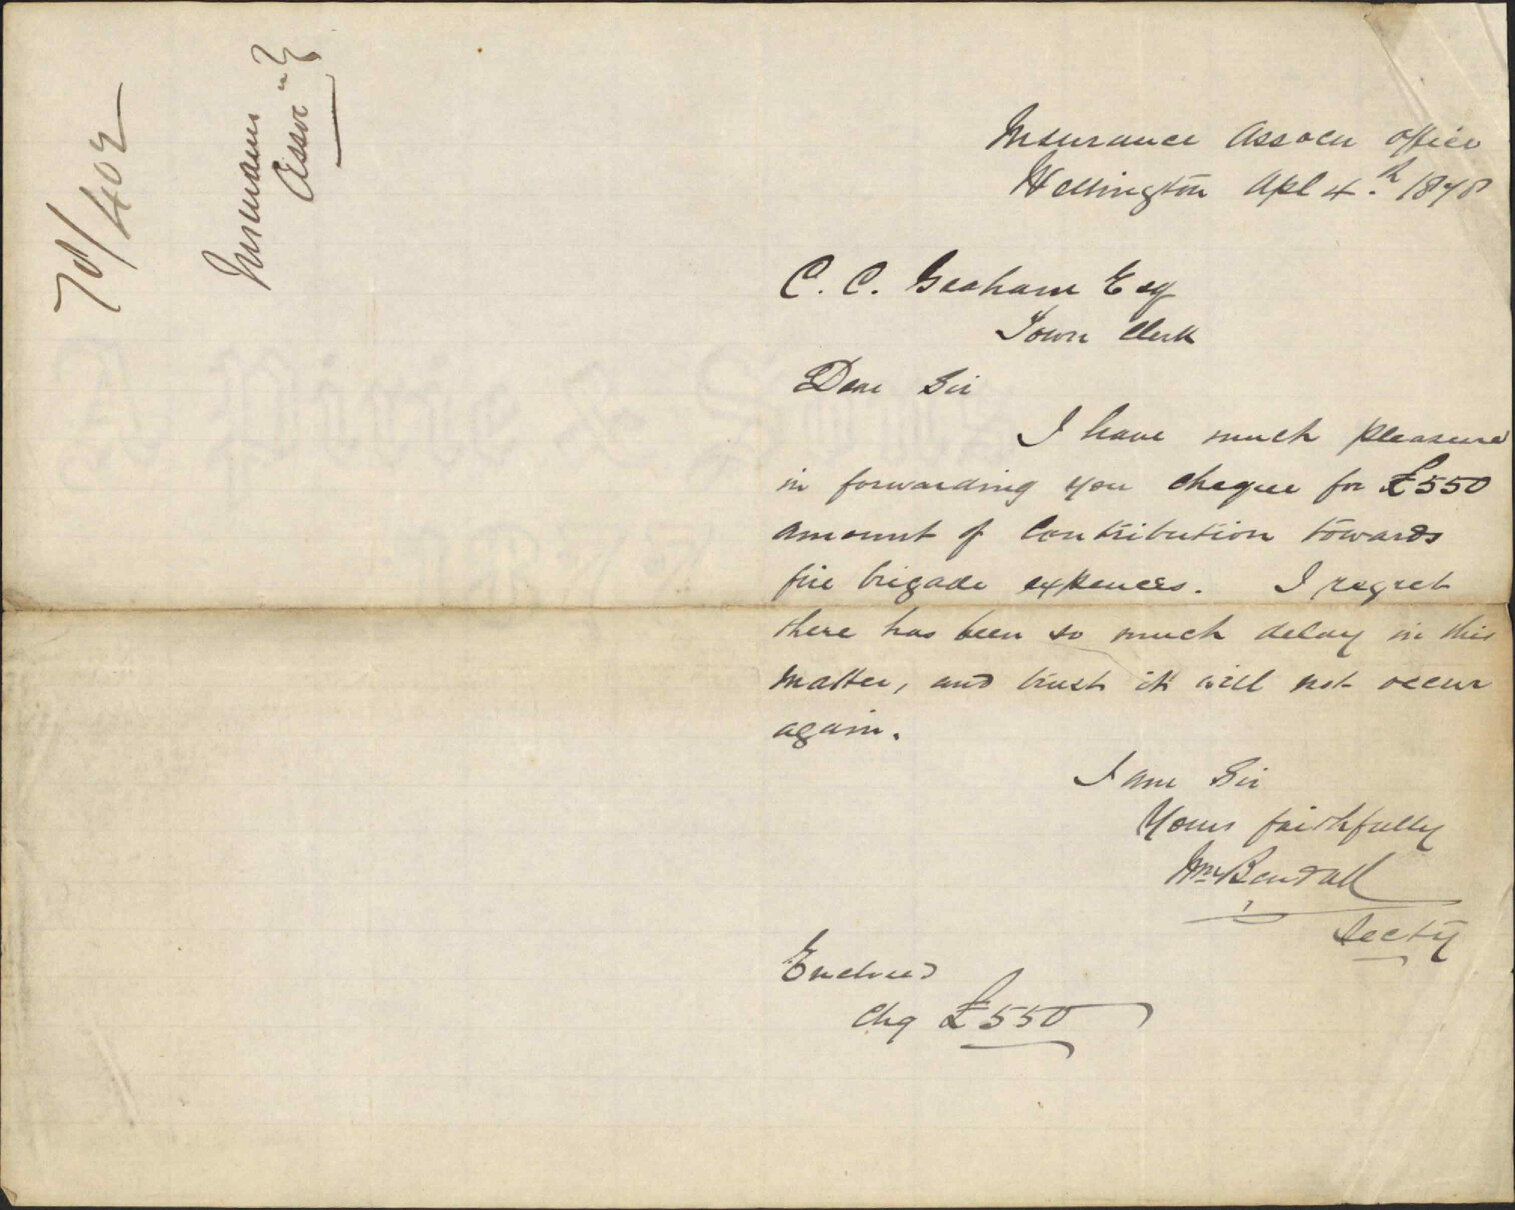 78/402
Insurance
Assocn
Insurance Assocn office
Wellington Apl 4th 1878
C. C. Graham Esq
Town Clerk
Dear Sir
I have much pleasure
in forwarding you cheque for £550
amount of Contribution towards
fire brigade expences. I regret
there has been so much delay in this
matter, and trust it will not occur
again.
I am Sir
Yours faithfully
Wm Bendall
Secty
Enclosed
Chq £550